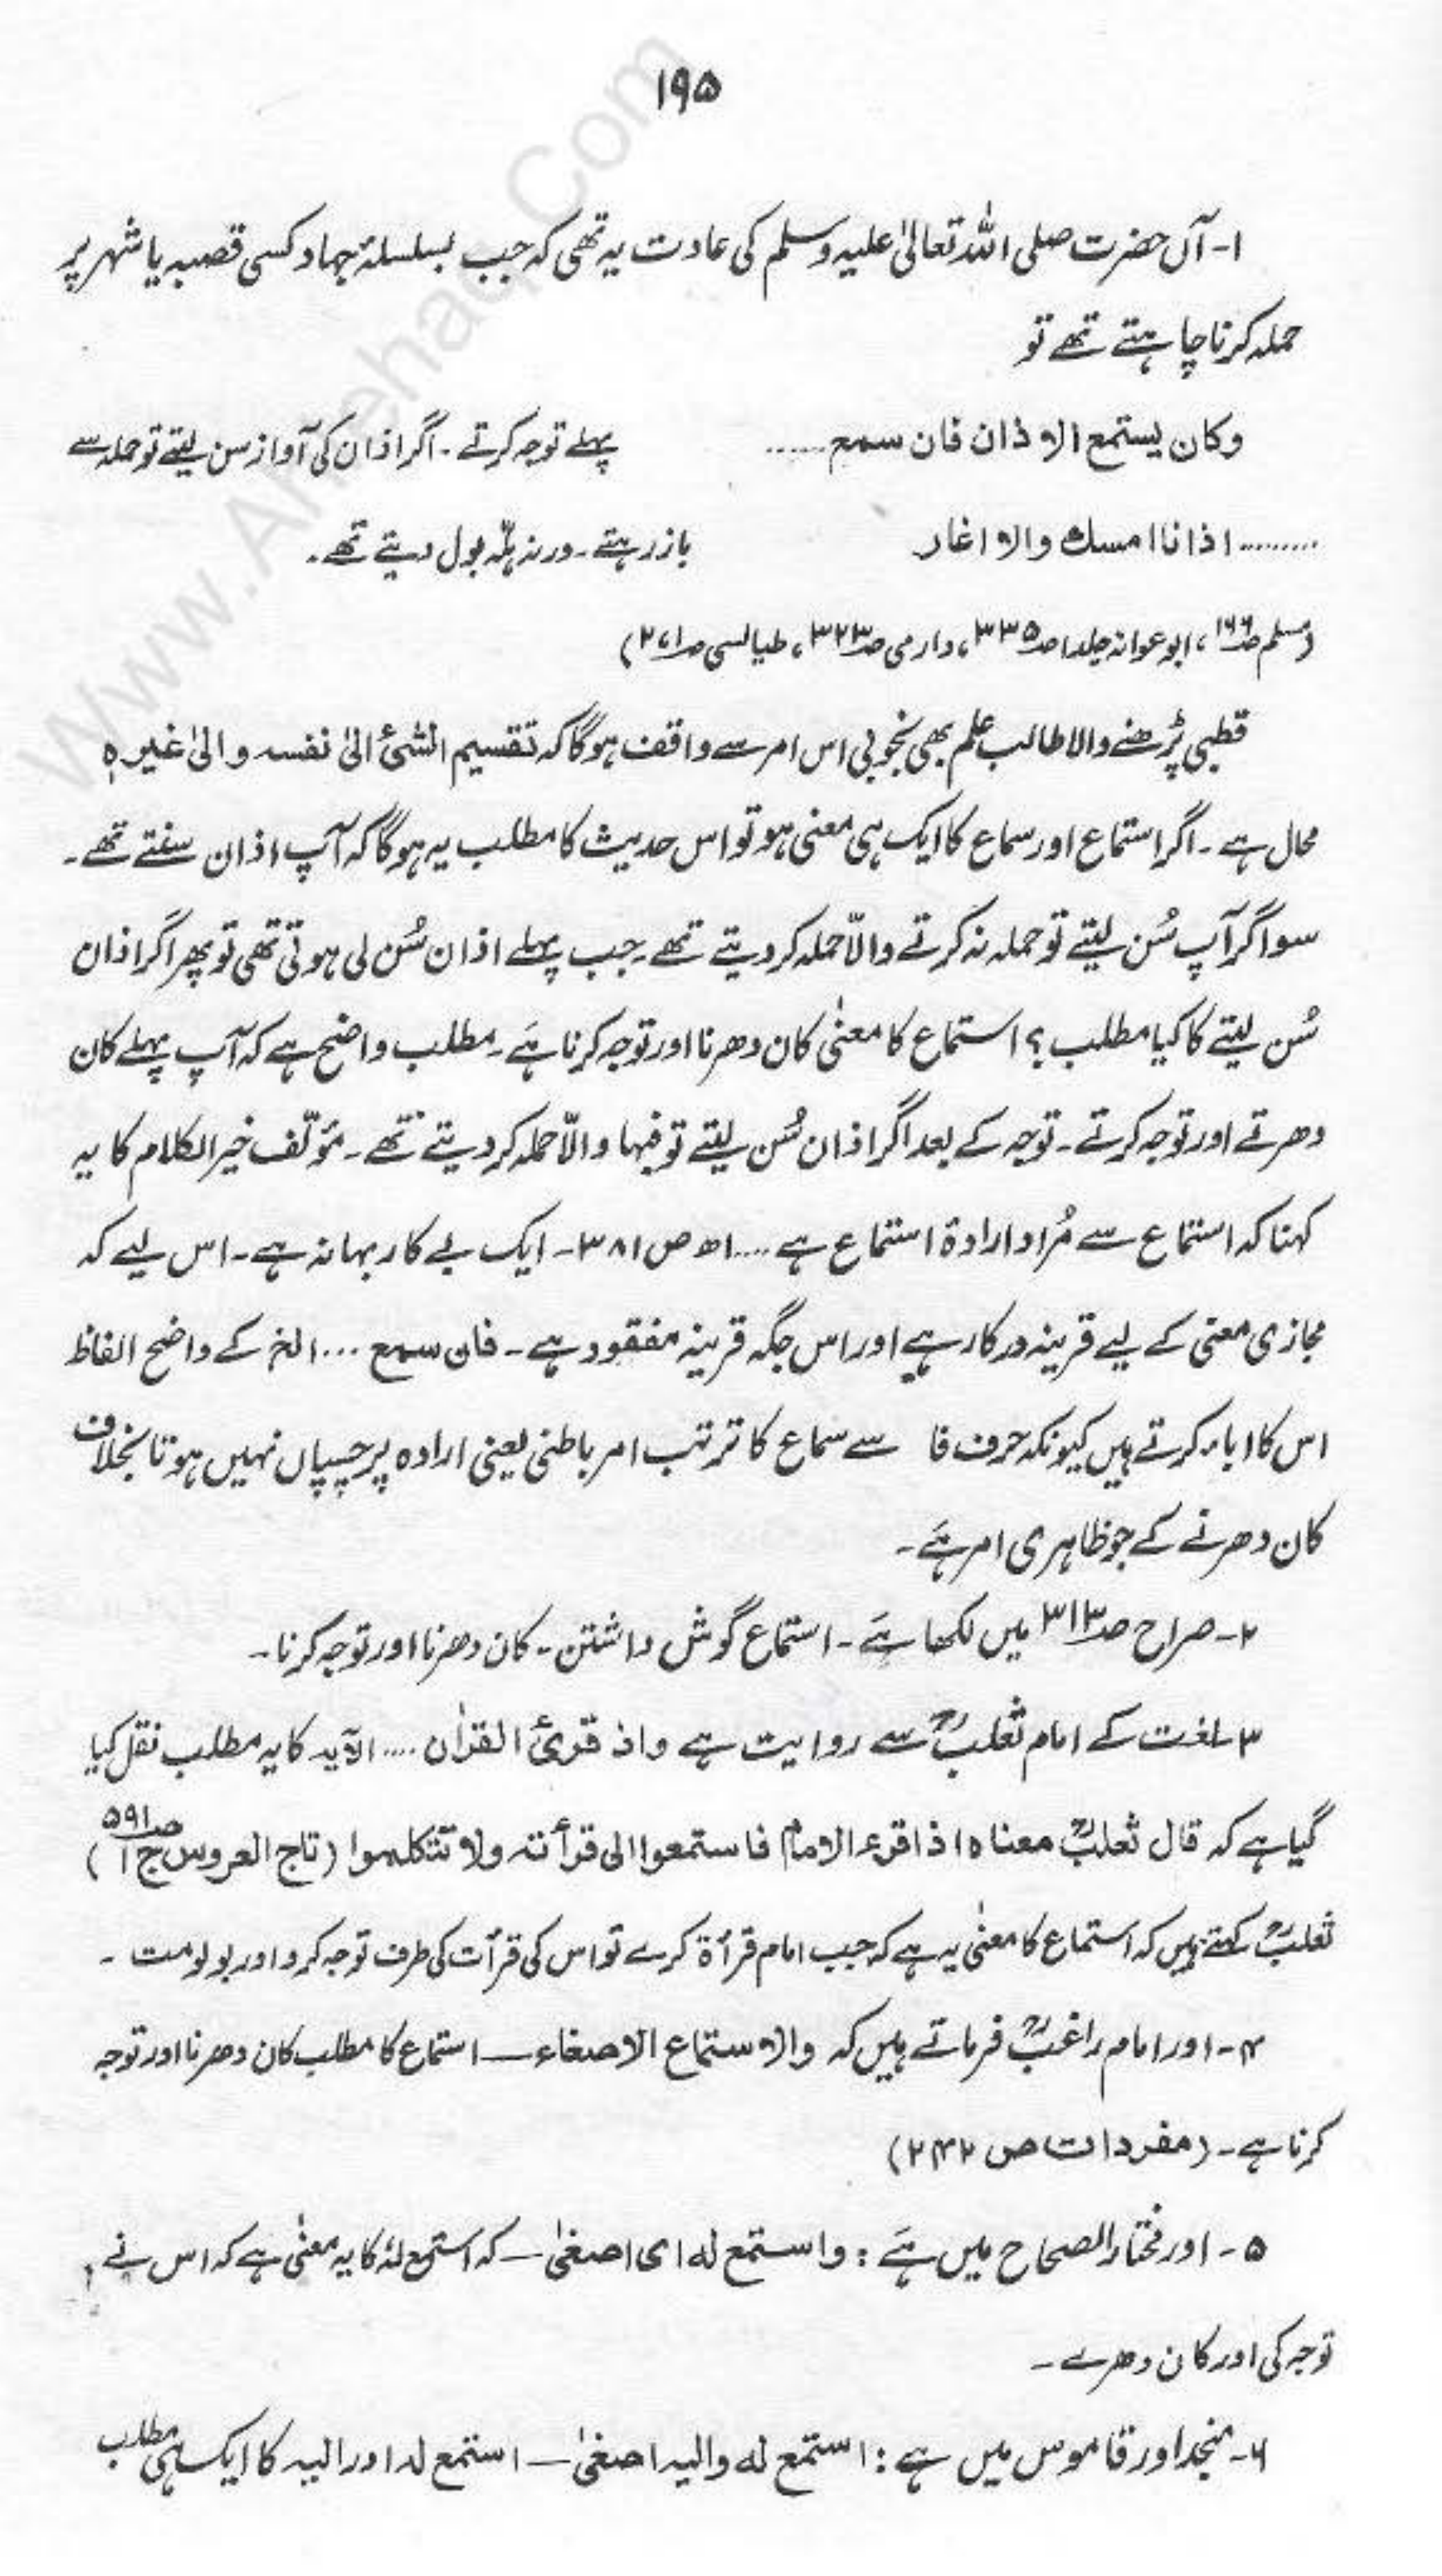 ۱۹۵
۱- آں حضرت صلی اللہ تعالیٰ علیہ وسلم کی عادت یہ تھی کہ جب بسلسلۂ جہاد کسی قصبہ یا شہر پر
حملہ کرنا چاہتے تھے تو
وکان یستمع الاذان فان سمع ...... پہلے توجہ کرتے ۔ اگر اذان کی آواز سن لیتے تو حملہ سے
......... اذانا امسك والا اغار باز رہتے ۔ ورنہ ہلّہ بول دیتے تھے ۔
(مسلم ص۱۶۶ ، ابوعوانہ جلد۱ ص۳۳۵ ، دارمی ص۳۲۳ ، طیالسی ص۲۷۱)
قطبی پڑھنے والا طالب علم بھی بخوبی اس امر سے واقف ہوگا کہ تقسیم الشیٔ الیٰ نفسہ و الیٰ غیرہٖ
محال ہے ۔ اگر استماع اور سماع کا ایک ہی معنی ہو تو اس حدیث کا مطلب یہ ہوگا کہ آپ اذان سنتے تھے ۔
سو اگر آپ سُن لیتے تو حملہ نہ کرتے والاّ حملہ کر دیتے تھے ۔ جب پہلے اذان سُن لی ہوتی تھی تو پھر اگر اذان
سُن لیتے کا کیا مطلب ؟ استماع کا معنیٰ کان دھرنا اور توجہ کرنا ہَے ۔ مطلب واضح ہے کہ آپ پہلے کان
دھرتے اور توجہ کرتے ۔ توجہ کے بعد اگر اذان سُن لیتے تو فبہا والاّ حملہ کر دیتے تھے ۔ مؤلّف خیر الکلام کا یہ
کہنا کہ استماع سے مُراد ارادۂ استماع ہے .... اھ ص ۳۸۱ ۔ ایک بے کار بہانہ ہے ۔ اس لیے کہ
مجازی معنی کے لیے قرینہ درکار ہے اور اس جگہ قرینہ مفقود ہے ۔ فان سمع ... الخ کے واضح الفاظ
اس کا اباء کرتے ہیں کیونکہ حرف فا سے سماع کا ترتب امر باطنی یعنی ارادہ پر چسپاں نہیں ہوتا بخلاف
کان دھرنے کے جو ظاہری امر ہَے ۔
۲- صراح ص۳۱۳ میں لکھا ہَے ۔ استماع گوش داشتن ۔ کان دھرنا اور توجہ کرنا ۔
۳- لغت کے امام ثعلبؒ سے روایت ہے واذ قرئ القراٰن .... الآیہ کا یہ مطلب نقل کیا
گیا ہے کہ قال ثعلبؒ معناہ اذا قرء الامام فاستمعوا الی قرأتہ ولا تتکلموا (تاج العروس ج۱ ص۵۹۱)
ثعلبؒ کہتے ہیں کہ استماع کا معنیٰ یہ ہے کہ جب امام قرأۃ کرے تو اس کی قرأت کی طرف توجہ کرو اور بولو مت ۔
۴- اور امام راغبؒ فرماتے ہیں کہ والاستماع الاصغاء — استماع کا مطلب کان دھرنا اور توجہ
کرنا ہے ۔ (مفردات ص ۲۴۲)
۵- اور مختار الصحاح میں ہَے : واستمع لہ ای اصغیٰ — کہ استمع لہٗ کا یہ معنیٰ ہے کہ اس نے
توجہ کی اور کان دھرے ۔
۶- منجد اور قاموس میں ہے : استمع لہ والیہ اصغیٰ — استمع لہ اور الیہ کا ایک ہی مطلب